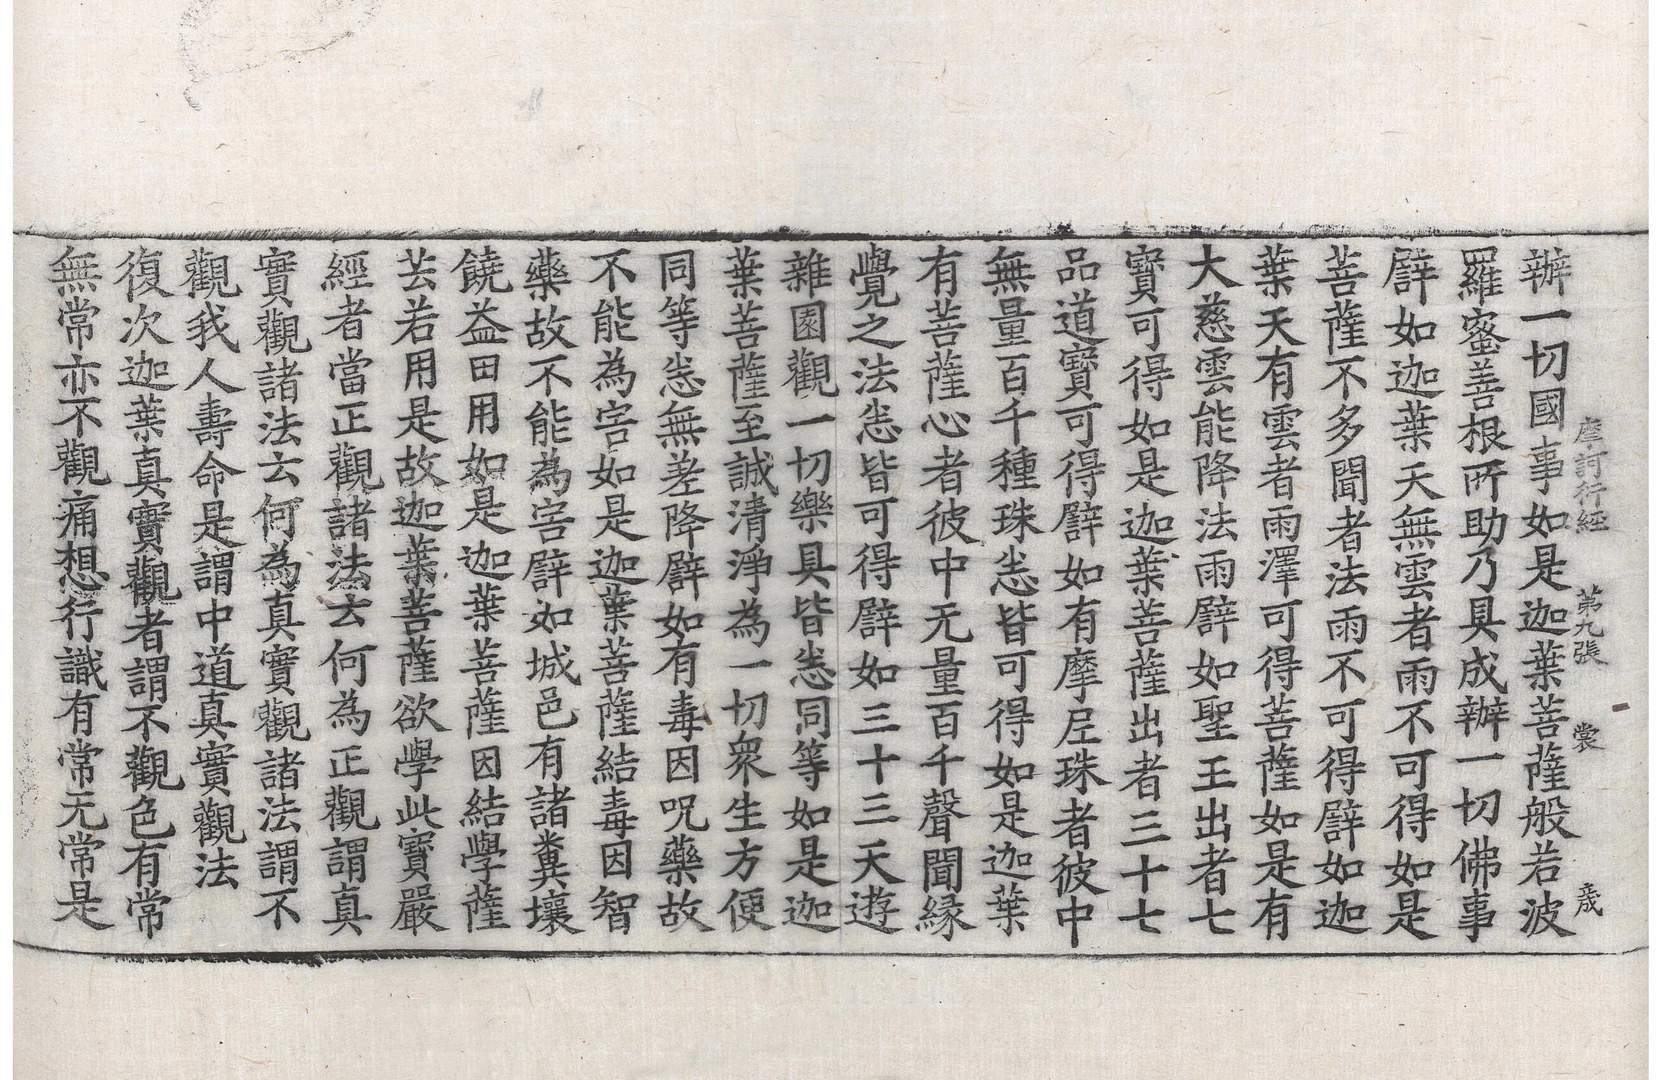 摩訶行經　第九張　裳　㞷
辦一切國事如是迦葉菩薩般若波
羅蜜善根所助乃具成辦一切佛事
譬如迦葉天無雲者雨不可得如是
菩薩不多聞者法雨不可得譬如迦
葉天有雲者雨澤可得菩薩如是有
大慈雲能降法雨譬如聖王出者七
寳可得如是迦葉菩薩出者三十七
品道寳可得譬如有摩尼珠者彼中
無量百千種珠悉皆可得如是迦葉
有菩薩心者彼中无量百千聲聞緣
覺之法悉皆可得譬如三十三天遊
雜園觀一切樂具皆悉同等如是迦
葉菩薩至誠清淨為一切衆生方便
同等悉無差降譬如有毒因呪藥故
不能為害如是迦葉菩薩結毒因智
藥故不能為害譬如城邑有諸糞壤
饒益田用如是迦葉菩薩因結學薩
芸若用是故迦葉菩薩欲學此寳嚴
經者當正觀諸法云何為正觀謂真
實觀諸法云何為真實觀諸法謂不
觀我人壽命是謂中道真實觀法
復次迦葉真實觀者謂不觀色有常
無常亦不觀痛想行識有常无常是